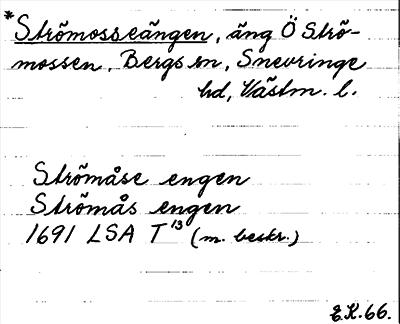 *Strömosseängen, äng Ö Strö-
mossen, Bergs sn, Snevringe
hd, Västm. l.
Strömåse engen
Strömås engen
1691 LSA T 13 (m. beskr.)
E.K. 66.